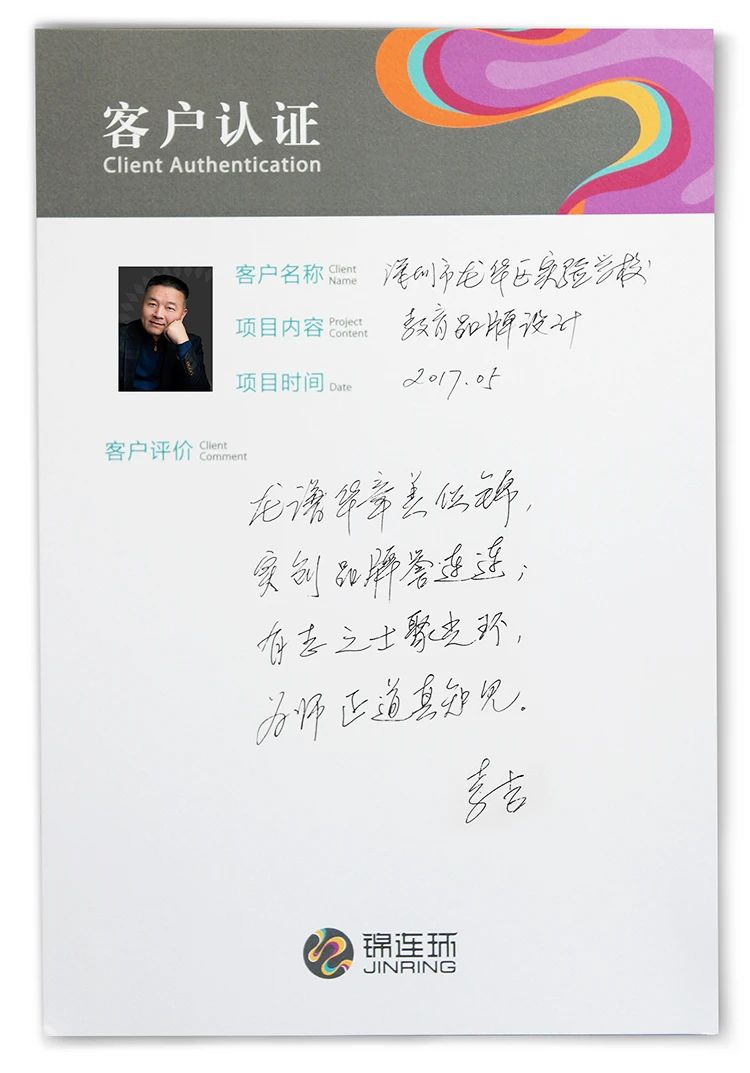 客户认证
Client Authentication
客户名称 Client Name 深圳市龙华区实验学校
项目内容 Project Content 教育品牌设计
项目时间 Date 2017.05
客户评价 Client Comment
龙谱华章美位锦,
实创品牌誉连连;
有志之士聚光环,
为师正道真知见。
李吉
锦连环
JINRING